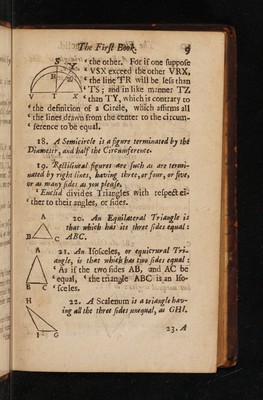 The First Book. 9
S Z
V T R X
‘ the other. For if one suppose
‘ VSX exceed the other VRX,
‘ the line TR will be less than
‘ TS; and in like manner TZ
‘ than TY, which is contrary to
‘ the definition of a Circle, which affirms all
‘ the lines drawn from the center to the circum-
‘ ference to be equal.
18. A Semicircle is a figure terminated by the
Diameter, and half the Circumference.
19. Rectilineal figures are such as are termi-
nated by right lines, having three, or four, or five,
or as many sides as you please.
‘ Euclid divides Triangles with respect ei-
‘ ther to their angles, or sides.
A
B C
20. An Equilateral Triangle is
that which has its three sides equal:
ABC.
A
B C
21. An Isosceles, or equicrural Tri-
angle, is that which has two sides equal:
‘ As if the two sides AB, and AC be
‘ equal, ‘ the triangle ABC is an Iso-
‘ sceles.
H
I G
22. A Scalenum is a triangle hav-
ing all the three sides unequal, as GHI.
23. A